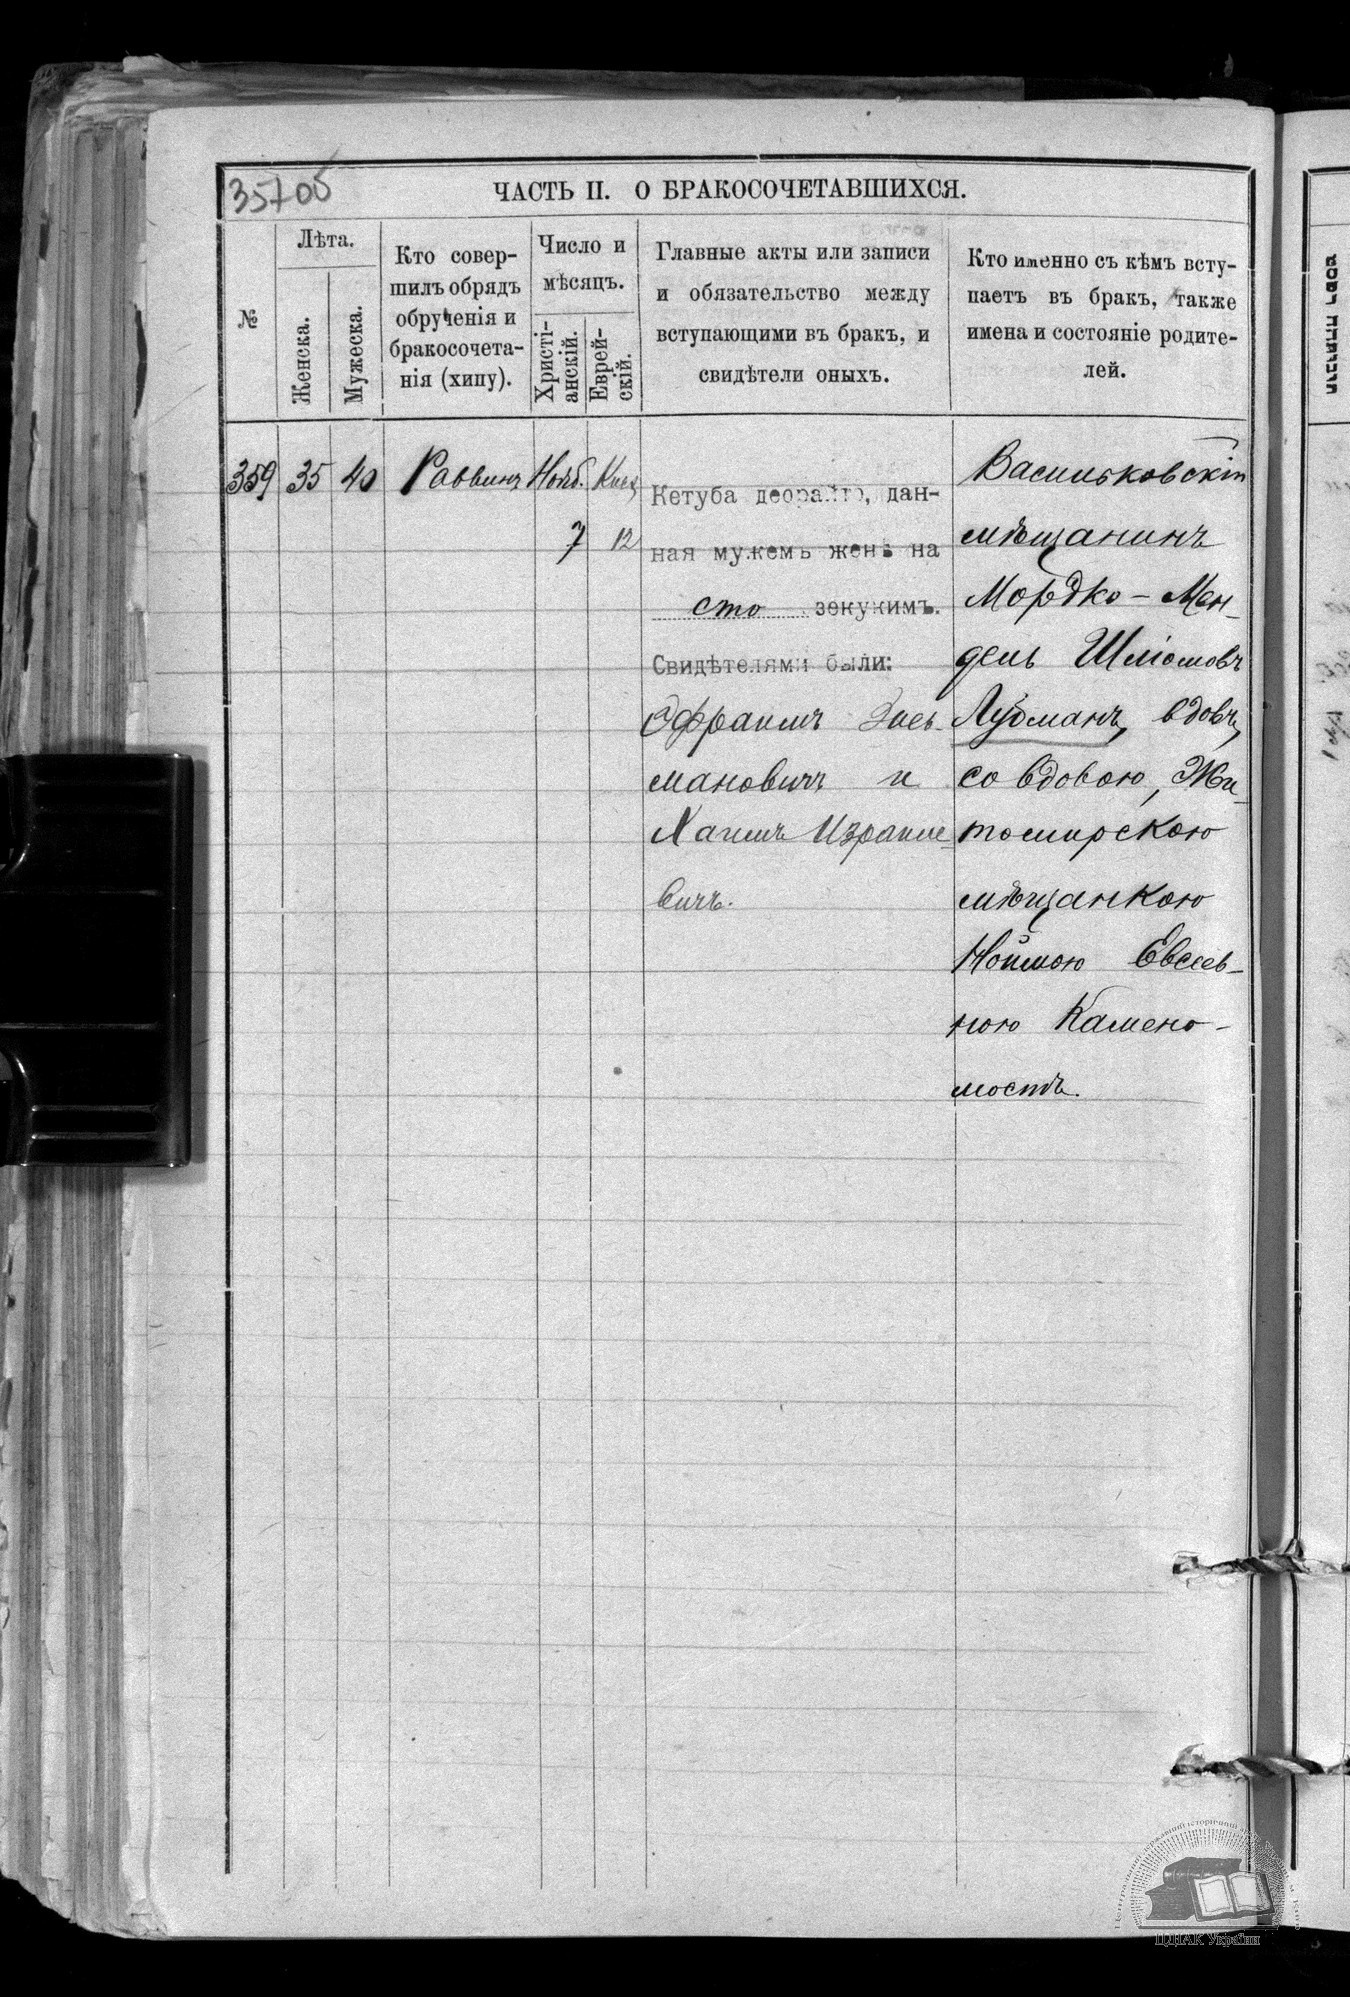 35705
ЧАСТЬ II. О БРАКОСОЧЕТАВШИХСЯ.
№
Лѣта.
Женска.
Мужеска.
Кто совер-
шилъ обрядъ
обрученія и
бракосочета-
нія (хипу).
Число и
мѣсяцъ.
Христі-
анскій.
Еврей-
скій.
Главные акты или записи
и обязательство между
вступающими въ бракъ, и
свидѣтели оныхъ.
Кто именно съ кѣмъ всту-
паетъ въ бракъ, также
имена и состояніе родите-
лей.
359 35 40 Раввинъ Нояб.
7 12
Кетуба деорайто, дан-
ная мужемъ женѣ на
сто зекукимъ.
Свидѣтелями были:
Эфраимъ Зись-
мановичъ и
Хаимъ Израиле-
вичъ.
Васильковскій
мѣщанинъ
Мордко-Мен-
дель Шліомовъ
вдовъ,
со вдовою, Жи-
томирскою
мѣщанкою
Ноймою Евсеев-
ною Камено-
мостъ.
ЦДІАК України